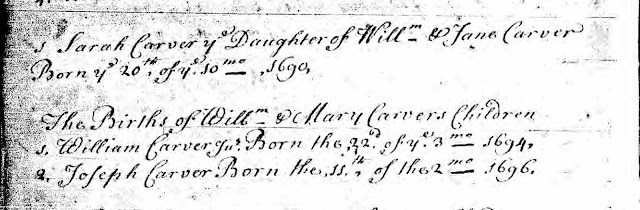 1 Sarah Carver yᵉ Daughter of Willᵐ & Jane Carver
Born yᵉ 20ᵗʰ of yᵉ 10ᵐᵒ 1690,
The Births of Willᵐ & Mary Carvers Children
1. William Carver Junʳ. Born the 22ᵈ of yᵉ 3ᵐᵒ 1694,
2. Joseph Carver Born the 11ᵗʰ, of the 2ᵐᵒ 1696.